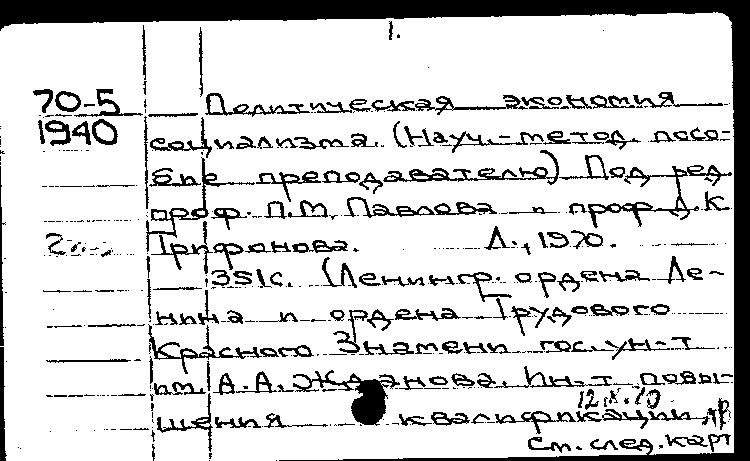 1.
70-5 Политическая экономия
1940 социализма. (Науч.-метод. посо-
бие преподавателю) Под ред.
проф. П.М. Павлова и проф. Д.К
Трифонова. Л., 1970.
351с. (Ленингр. ордена Ле-
нина и ордена Трудового
Красного Знамени гос. ун-т
им. А.А. Жданова. Ин-т повы-
12.X.70
шения квалификации
См. след. карт